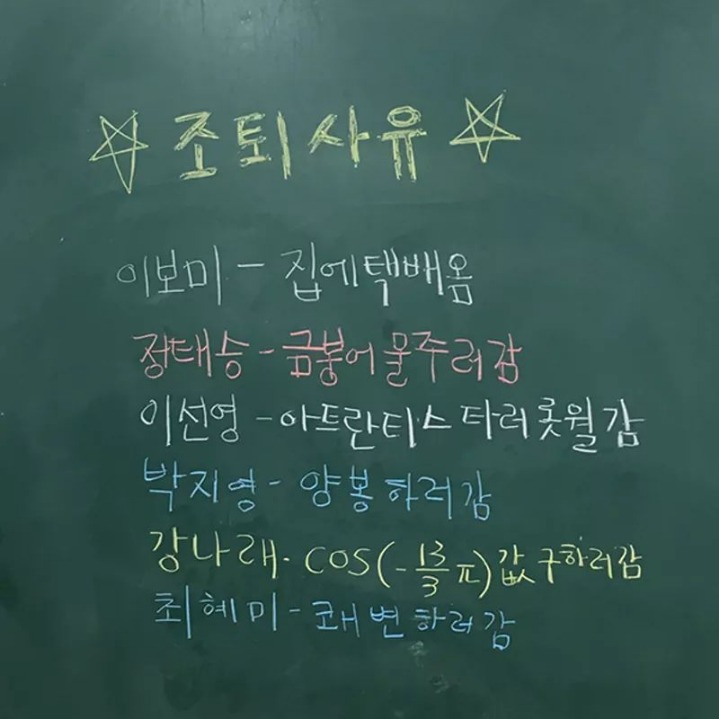 ☆조퇴사유☆
이보미 - 집에택배옴
장태승 - 금붕어물주러감
이선영 - 아트란티스 타러롯월감
박지영 - 양봉하러감
강나래. cos(-13/3 π) 값 구하러감
최혜미 - 쾌변하러감